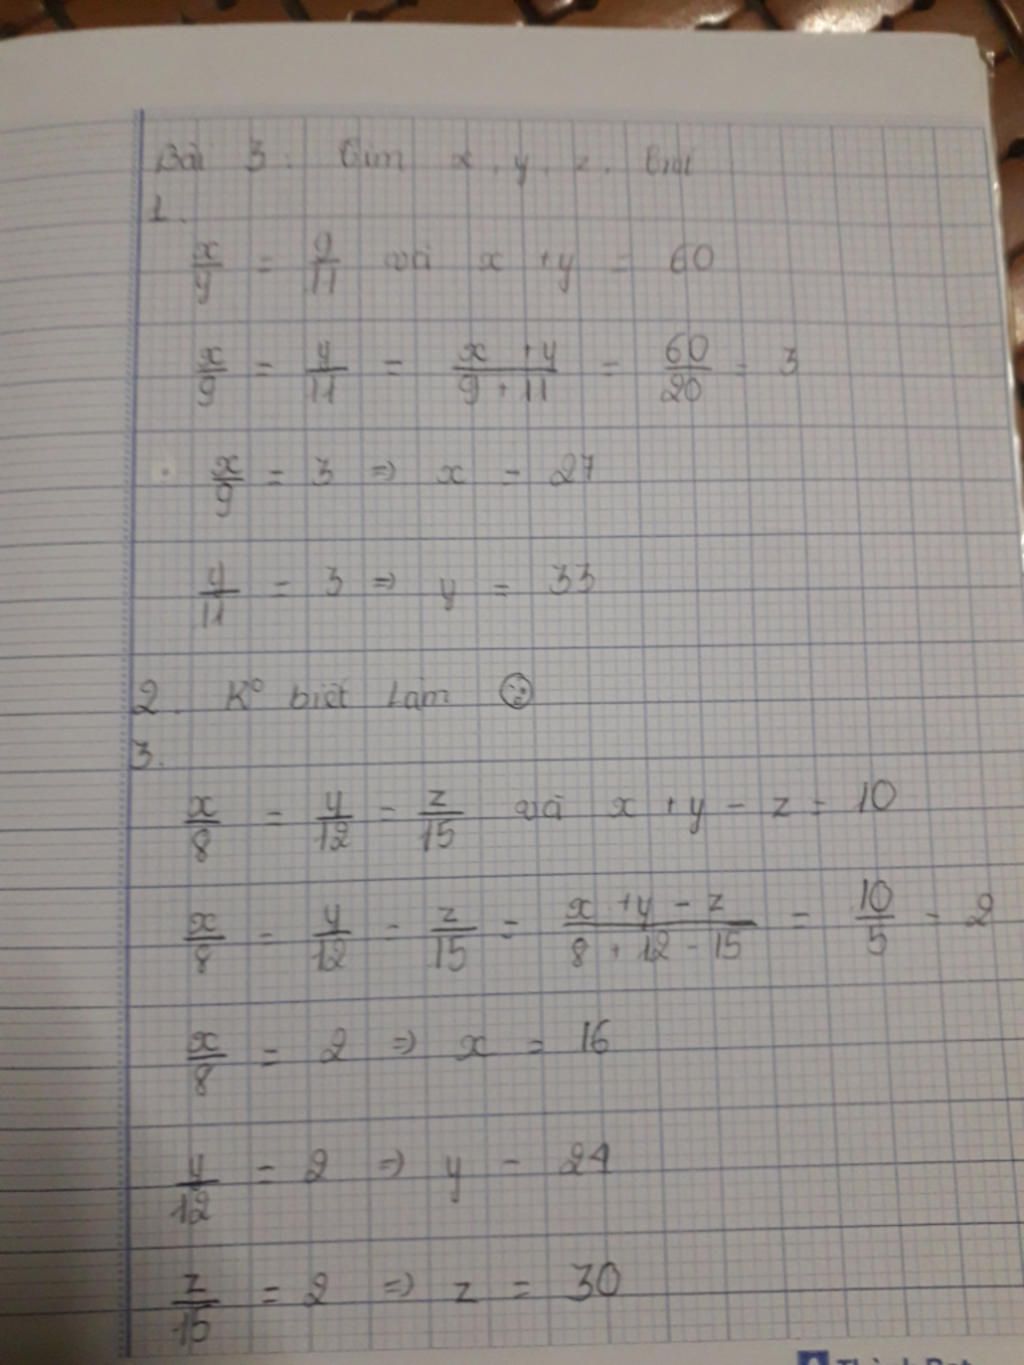 Bài 3: Tìm x, y, z, biết
1.
x/y = 9/11 và x + y = 60
x/9 = y/11 = x + y/9 + 11 = 60/20 = 3
x/9 = 3 => x = 27
y/11 = 3 => y = 33
2. K° biết làm
3.
x/8 = y/12 = z/15 và x + y - z = 10
x/8 = y/12 = z/15 = x + y - z/8 + 12 - 15 = 10/5 = 2
x/8 = 2 => x = 16
y/12 = 2 => y = 24
z/15 = 2 => z = 30